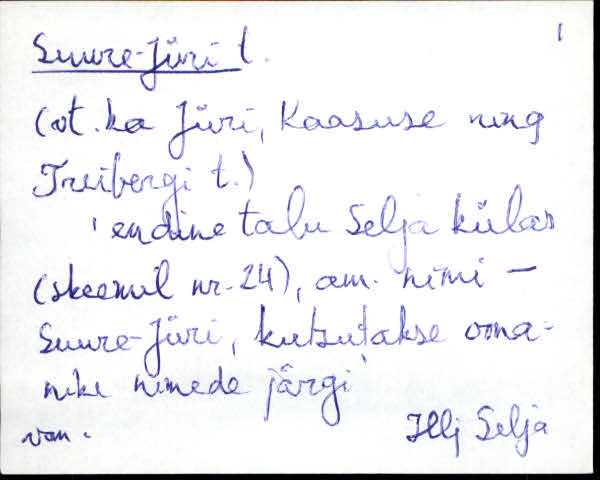 1
Suure-Jüri t.
(vt. ka Jüri, Kaasuse ning
Treibergi t.)
'endine talu Selja külas
(skeemil nr. 24), am. nimi -
Suure-Jüri, kutsutakse oma-
nike nimede järgi'
van. Hlj Selja